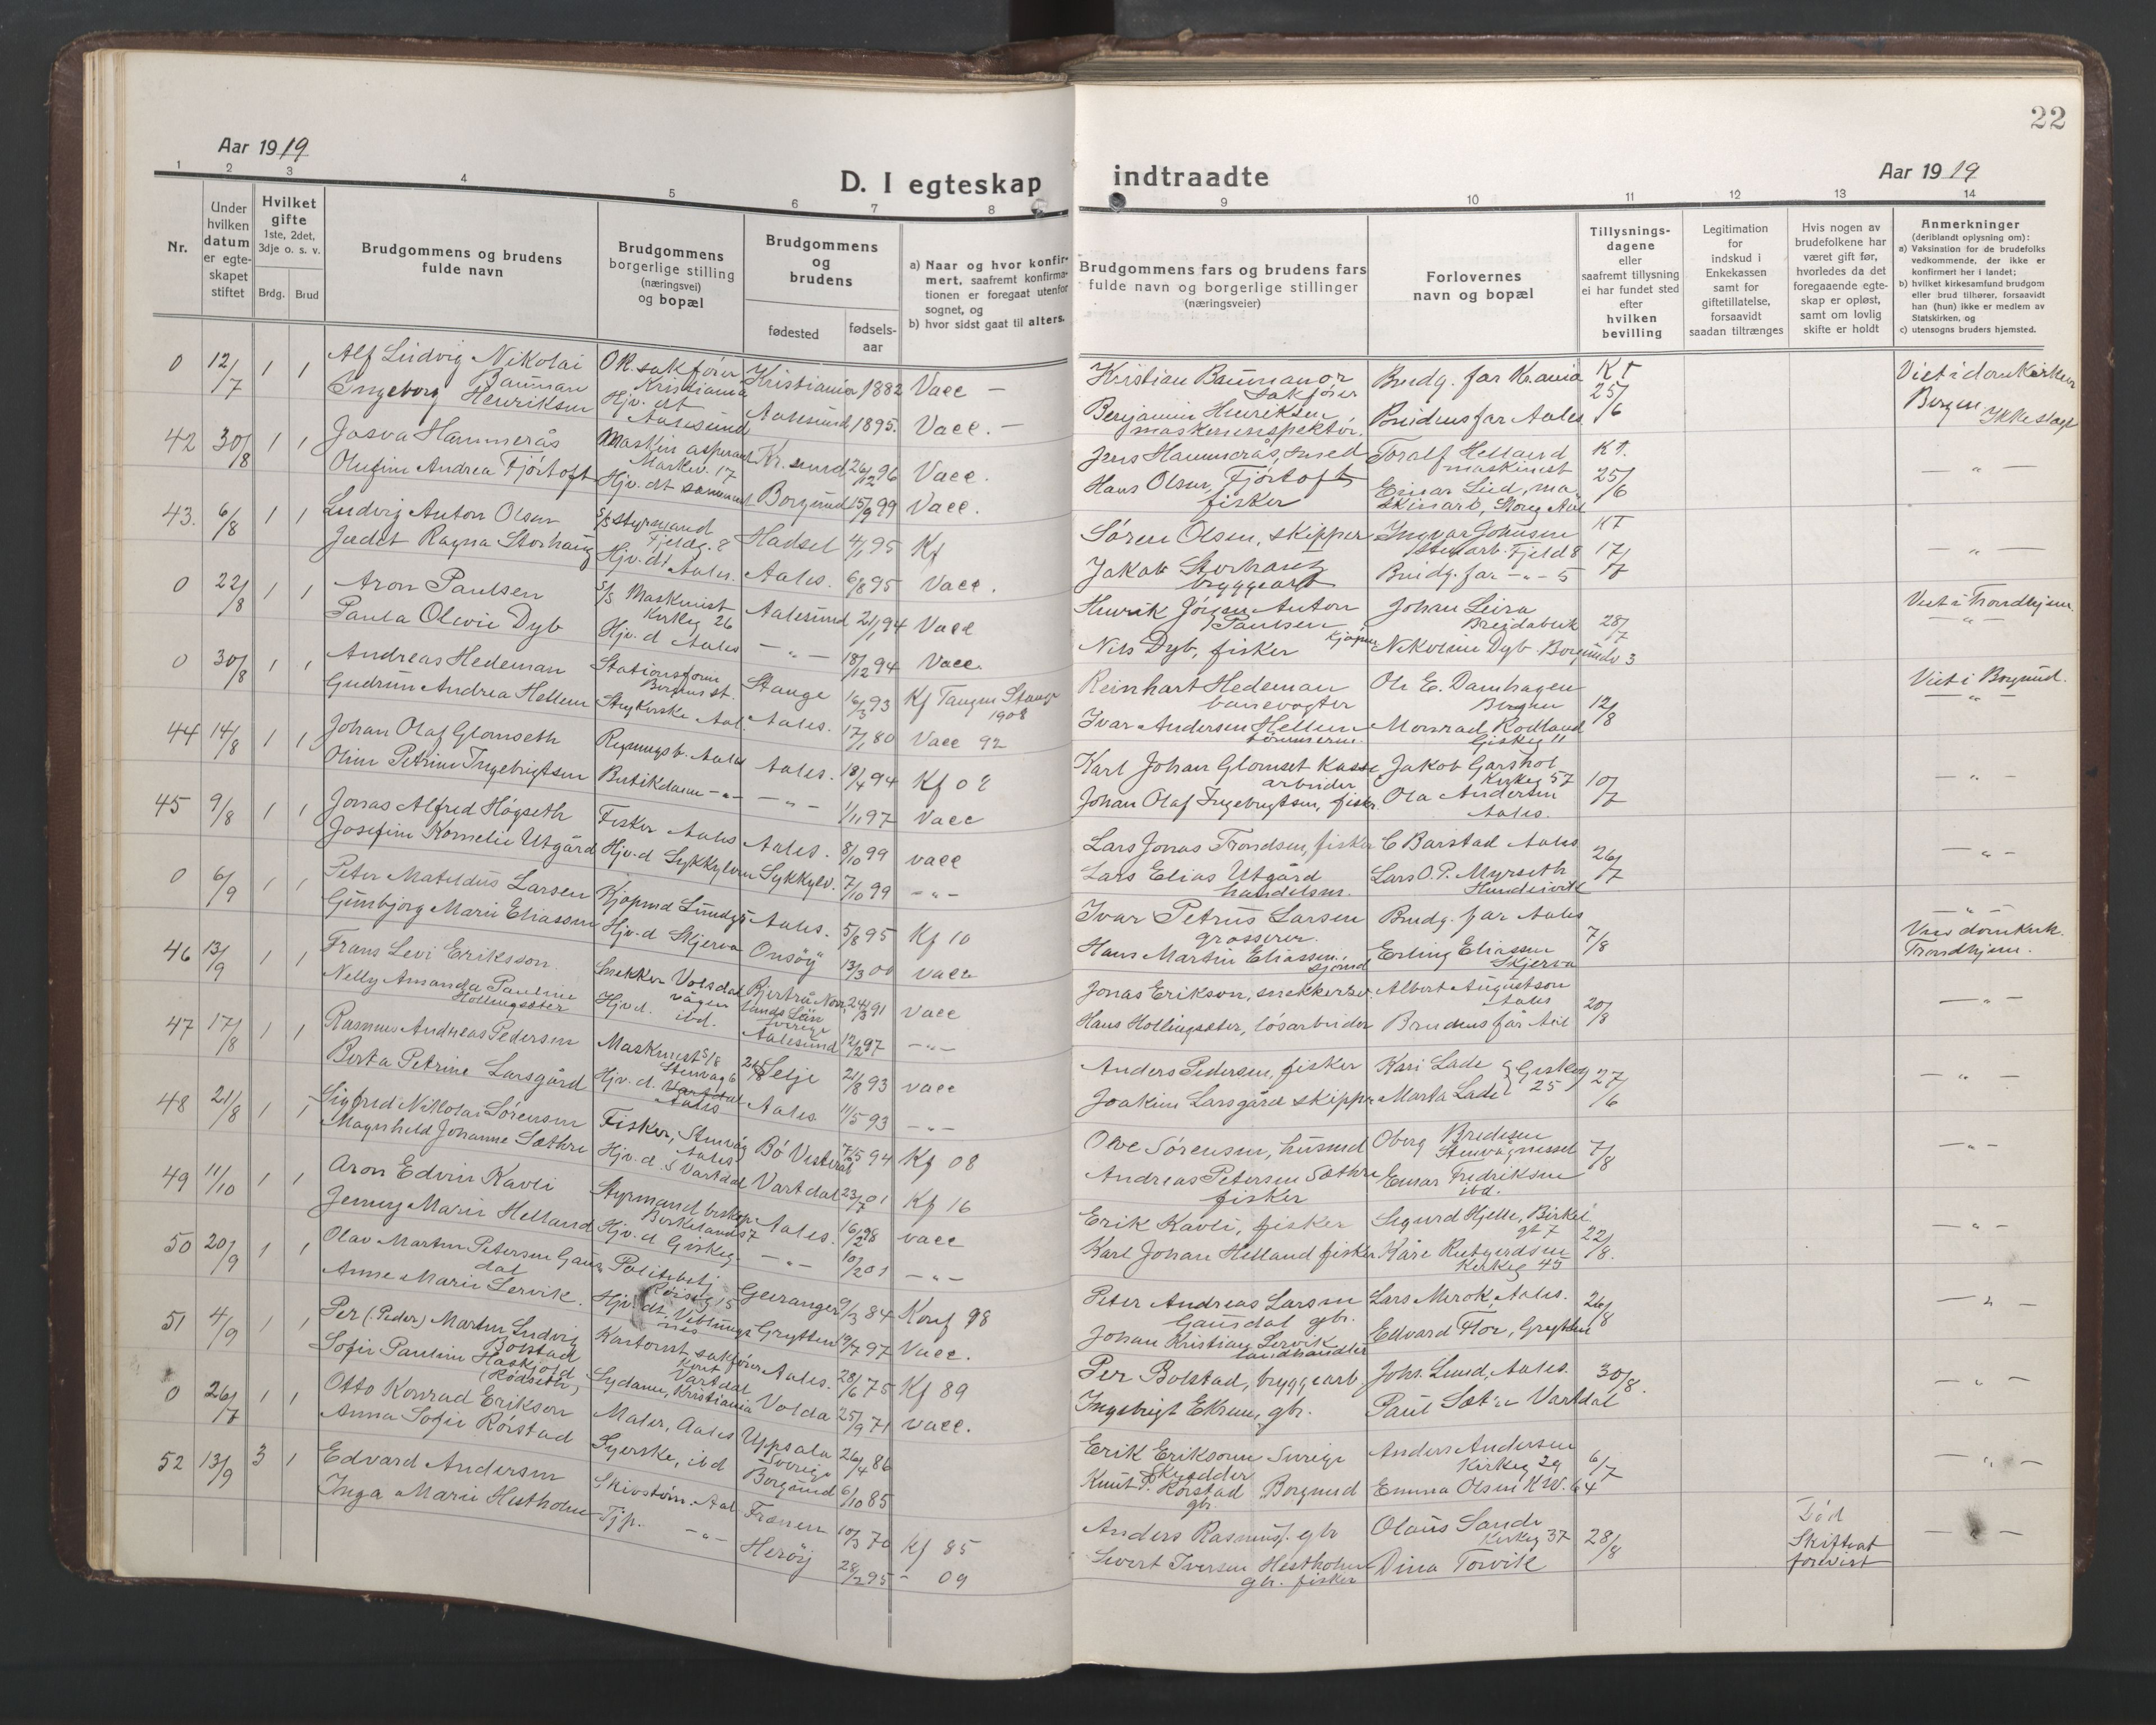 22
Aar 1919
D. I egteskap
indtraadte
Aar 1919
1 2 3 4 5 6 7 8 9 10 11 12 13 14
Nr.
Under
hvilken
datum
er egte-
skapet
stiftet
Hvilket
gifte
1ste, 2det,
3dje o. s. v.
Brdg. Brud
Brudgommens og brudens
fulde navn
Brudgommens
borgerlige stilling
(næringsvei)
og bopæl
Brudgommens
og
brudens
fødested
fødsels-
aar
a) Naar og hvor konfir-
mert, saafremt konfirma-
tionen er foregaat utenfor
sognet, og
b) hvor sidst gaat til alters.
Brudgommens fars og brudens fars
fulde navn og borgerlige stillinger
(næringsveier)
Forlovernes
navn og bopæl
Tillysnings-
dagene
eller
saafremt tillysning
ei har fundet sted
efter
hvilken
bevilling
Legitimation
for
indskud i
Enkekassen
samt for
giftetillatelse,
forsaavidt
saadan tiltrænges
Hvis nogen av
brudefolkene har
været gift før,
hvorledes da det
foregaaende egte-
skap er opløst,
samt om lovlig
skifte er holdt
Anmerkninger
(deriblandt oplysning om):
a) Vaksination for de brudefolks
vedkommende, der ikke er
konfirmert her i landet;
b) hvilket kirkesamfund brudgom
eller brud tilhører, forsaavidt
han (hun) ikke er medlem av
Statskirken, og
c) utensogns bruders hjemsted.
0 12/7 1 1 Alf Ludvig Nikolai
Bauman
OR. sakfører
Kristiania
Kristiania 1882 Vacc —
Kristian Bauman or
Sakfører
Brudg. far Krania K.T
25/6
Viet i domkirken
Bergen
Ikke slagt
Ingeborg Henriksen Hjv. dt
Aalesund
Aalesund 1895. Vacc. —
Benjamin Henriksen
maskininspektør.
Brudens far Aales.
42 30/8 1 1 Josva Hammerås Maskin aspirant
Markev. 17
Kr.sund 26/12 96 Vacc.
Jens Hammerås, smed Toralf Helland
maskinist
K.T.
25/6
— " —
Olufine Andrea Fjörtoft Hjv. dt sammest Borgund 15/9 99 Vacc.
Hans Olsen, Fjörtoft
fisker
Einar Lied, ma
skinarb, Storg Aal
43. 6/8 1 1 Ludvig Anton Olsen S/S styrmand
Fjeldg. 8
Hadsel 4/1 95 Kf
Søren Olsen, skipper Ingvar Johansen
stenarb. Fjeld 8
KT
17/7
— " —
Judit Ragna Storhaug Hjv. dt Aales. Aales. 6/8 95 Vacc.
Jakob Storhaug
bryggearb
Brudg. far —"— 5
0 22/8 1 1 Aron Paulsen S/S Maskinist
Kirkeg 26
Aalesund 21/1 94 Vacc
Henrik Jörgen Anton
Paulsen
Johan Leira
Breidablik
28/7
Viet i Trondhjem.
— " —
Paula Olivie Dyb Hjv. d Aales — " — 18/12 94 Vacc.
Nils Dyb, fisker Nikoline Dyb. Borgundv 3
0 30/8 1 1 Andreas Hedeman Stationsform
Bergens st.
Stange 16/3 93 Kf Tangen Stange
1908
Reinhart Hedeman
banevogter
Ole E. Damhagen
Bergen
12/8
Viet i Borgund.
— " —
Gudrun Andrea Hellem Strykerske Aal. Aales. 17/1 80 Vacc 92
Ivar Andersen Hellem
tömmerm.
Monrad Rodland
Giskeg 11
44 14/8 1 1 Johan Olaf Glomseth Regningsb. Aales Aales. 18/4 94 Kf 08
Karl Johan Glomset Kasse
arbeider
Jakob Garshol
Kirkeg 57
10/7
— " —
Oline Petrine Ingebrigtsen Butikdame —"— — " — 1/11 97 Vacc
Johan Olaf Ingebrigtsen, fisker Ola Andersen
Aales.
45 9/8 1 1 Jonas Alfred Högseth Fisker Aales Aales. 8/10 99 vacc
Lars Jonas Trondsen, fisker C Barstad Aales
26/7
— " —
Josefine Kornelie Utgård Hjv. d Sykkylven Sykkylv. 7/10 99 — " —
Lars Elias Utgård
handelsm.
Lars O. P. Myrseth
Hundeivik
0 6/9 1 1 Peter Mateldus Larsen Kjøpmd Aales. 5/8 95 Kf 10
Ivar Petrus Larsen
grosserer.
Brudg. far Aales
7/8
— " —
Viet domkirk.
Trondhjem.
Gunbjorg Marie Eliassen Hjv. d Skjerva Onsöy 13/3 00 vacc
Hans Martin Eliassen.
sjömd
Erling Eliassen
Skjerva
46 13/9 1 1 Frans Levi Erikson Snekker Volsdal
vågen
Bjertrå Norr
lands Län
Sverige
24/3 91 vacc
Jonas Erikson, snekkersv. Albert Augustson
Aales
20/8
— " —
Nelly Amanda Pauline
Hollingsæter
Hjv. d. ibd. Aalesund 12/2 97 — " —
Hans Hollingsæter, lösarbeider Brudens far Aal
47 17/8 1 1 Rasmus Andreas Pedersen Maskinist S/S
Stenvåg 6
Selje 21/8 93 vacc
Anders Pedersen, fisker Kari Lade Giskeg
25
27/6
— " —
Berta Petrine Larsgård Hjv. d. Vartdal
Aales
Aales 11/5 93 — " —
Joakim Larsgård skipper Marta Lade
48 21/8 1 1 Sigfred Nikkolai Sörensen Fisker, Stenvåg
Aales
Bö Vesterål 7/5 94 Kf 08
Olve Sörensen, husmd Oberg Bredesen
Stenvågnesset
7/8
— " —
Magnhild Johanne Sæthre Hjv. d. S Vartdal Vartdal 23/7 01 Kf 16
Andreas Petersen Sæthre
fisker
Einar Fredriksen
ibd.
49 11/10 1 1 Aron Edvin Kavli Styrmand
Birkelands 7
Aales. 16/2 98 vacc
Erik Kavli, fisker Sigurd Hjelle, Birkel.
gt 7
22/8.
— " —
Jenny Marie Helland Hjv. d Giskeg — " — 10/2 01 — " —
Karl Johan Helland fisker Kåre Rutgerdsen
Kirkeg 45
50 20/9 1 1 Olav Martin Petersen Gaus
dal
Politibetj
Röisg 15
Geiranger 9/3 84 Konf 98
Peter Andreas Larsen
Gausdal gbr.
Lars Merok, Aales.
26/8
— " —
Anne Marie Lervik. Hjv. dt. Veblungs
nes
Grytten 19/7 97 Vacc.
Johan Kristian Lervik
landhandler
Edvard Flor, Grytten
51 4/9 1 1 Per (Peder) Martin Ludvig
Bolstad
Kontorist sakfører
Aales. 28/6 75 Kf 89
Per Bolstad, bryggearb. Johs. Lund, Aales.
30/8.
— " —
Sofie Pauline Haskjold
(Rödseth)
Sydame, Kristiania Volda 25/9 71 vacc.
Ingebrigt Ekrem, gbr. Paul Sæter Vartdal
0 26/7 1 1 Otto Konrad Erikson Maler, Aales Uppsala
Sverige
26/4 86
Erik Eriksonn Sverige
Skrædder
Anders Andersen
Kirkeg 29
6/7
— " —
Anna Sofie Rörstad Syerske, ibd Borgund 6/10 85
Knut P. Rörstad Borgund
gbr.
Emma Olsen K.W. 64
52 13/9 3 1 Edvard Andersen Aal Frænen 10/3 70 Kf 85
Anders Rasmusf. gbr Olaus Sande
Kirkeg 37
28/8
Död
Skiftrat
forevist
— " —
Inga Marie Hestholm Tjp. — " — Heröy 28/2 95 - 09
Sivert Iversen Hestholm
gbr. fisker
Dina Torvik